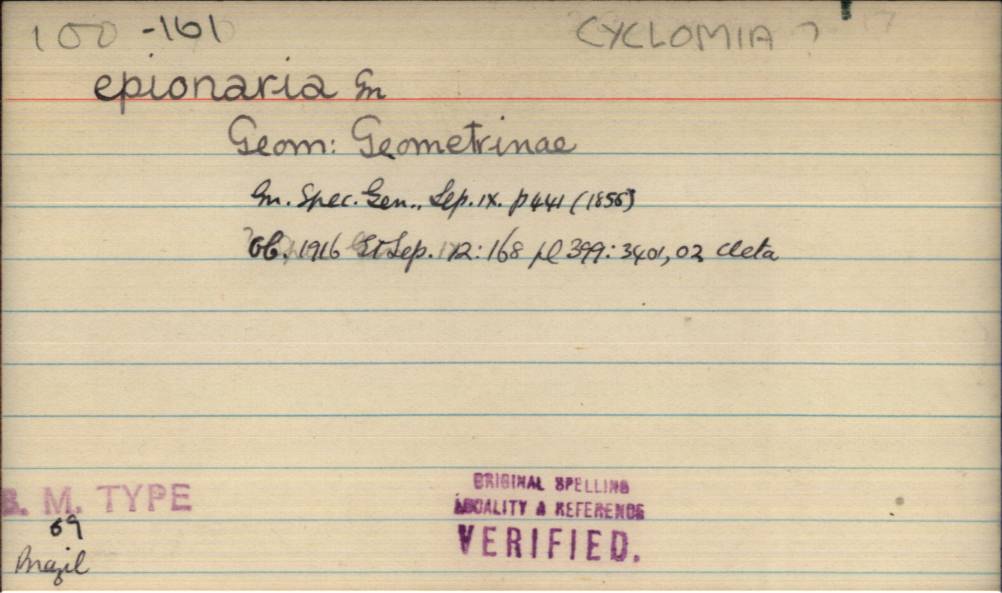 100 -161 CYCLOMIA ?
epionaria Gn
Geom: Geometrinae
Gn. Spec. Gen., Lep. ix. p 441 (1858)
Ob. 1916 Et Lep. 12: 168 pl 399: 3401, 02 cleta
B. M. TYPE
ORIGINAL SPELLING
LOCALITY & REFERENCE
VERIFIED.
Brazil